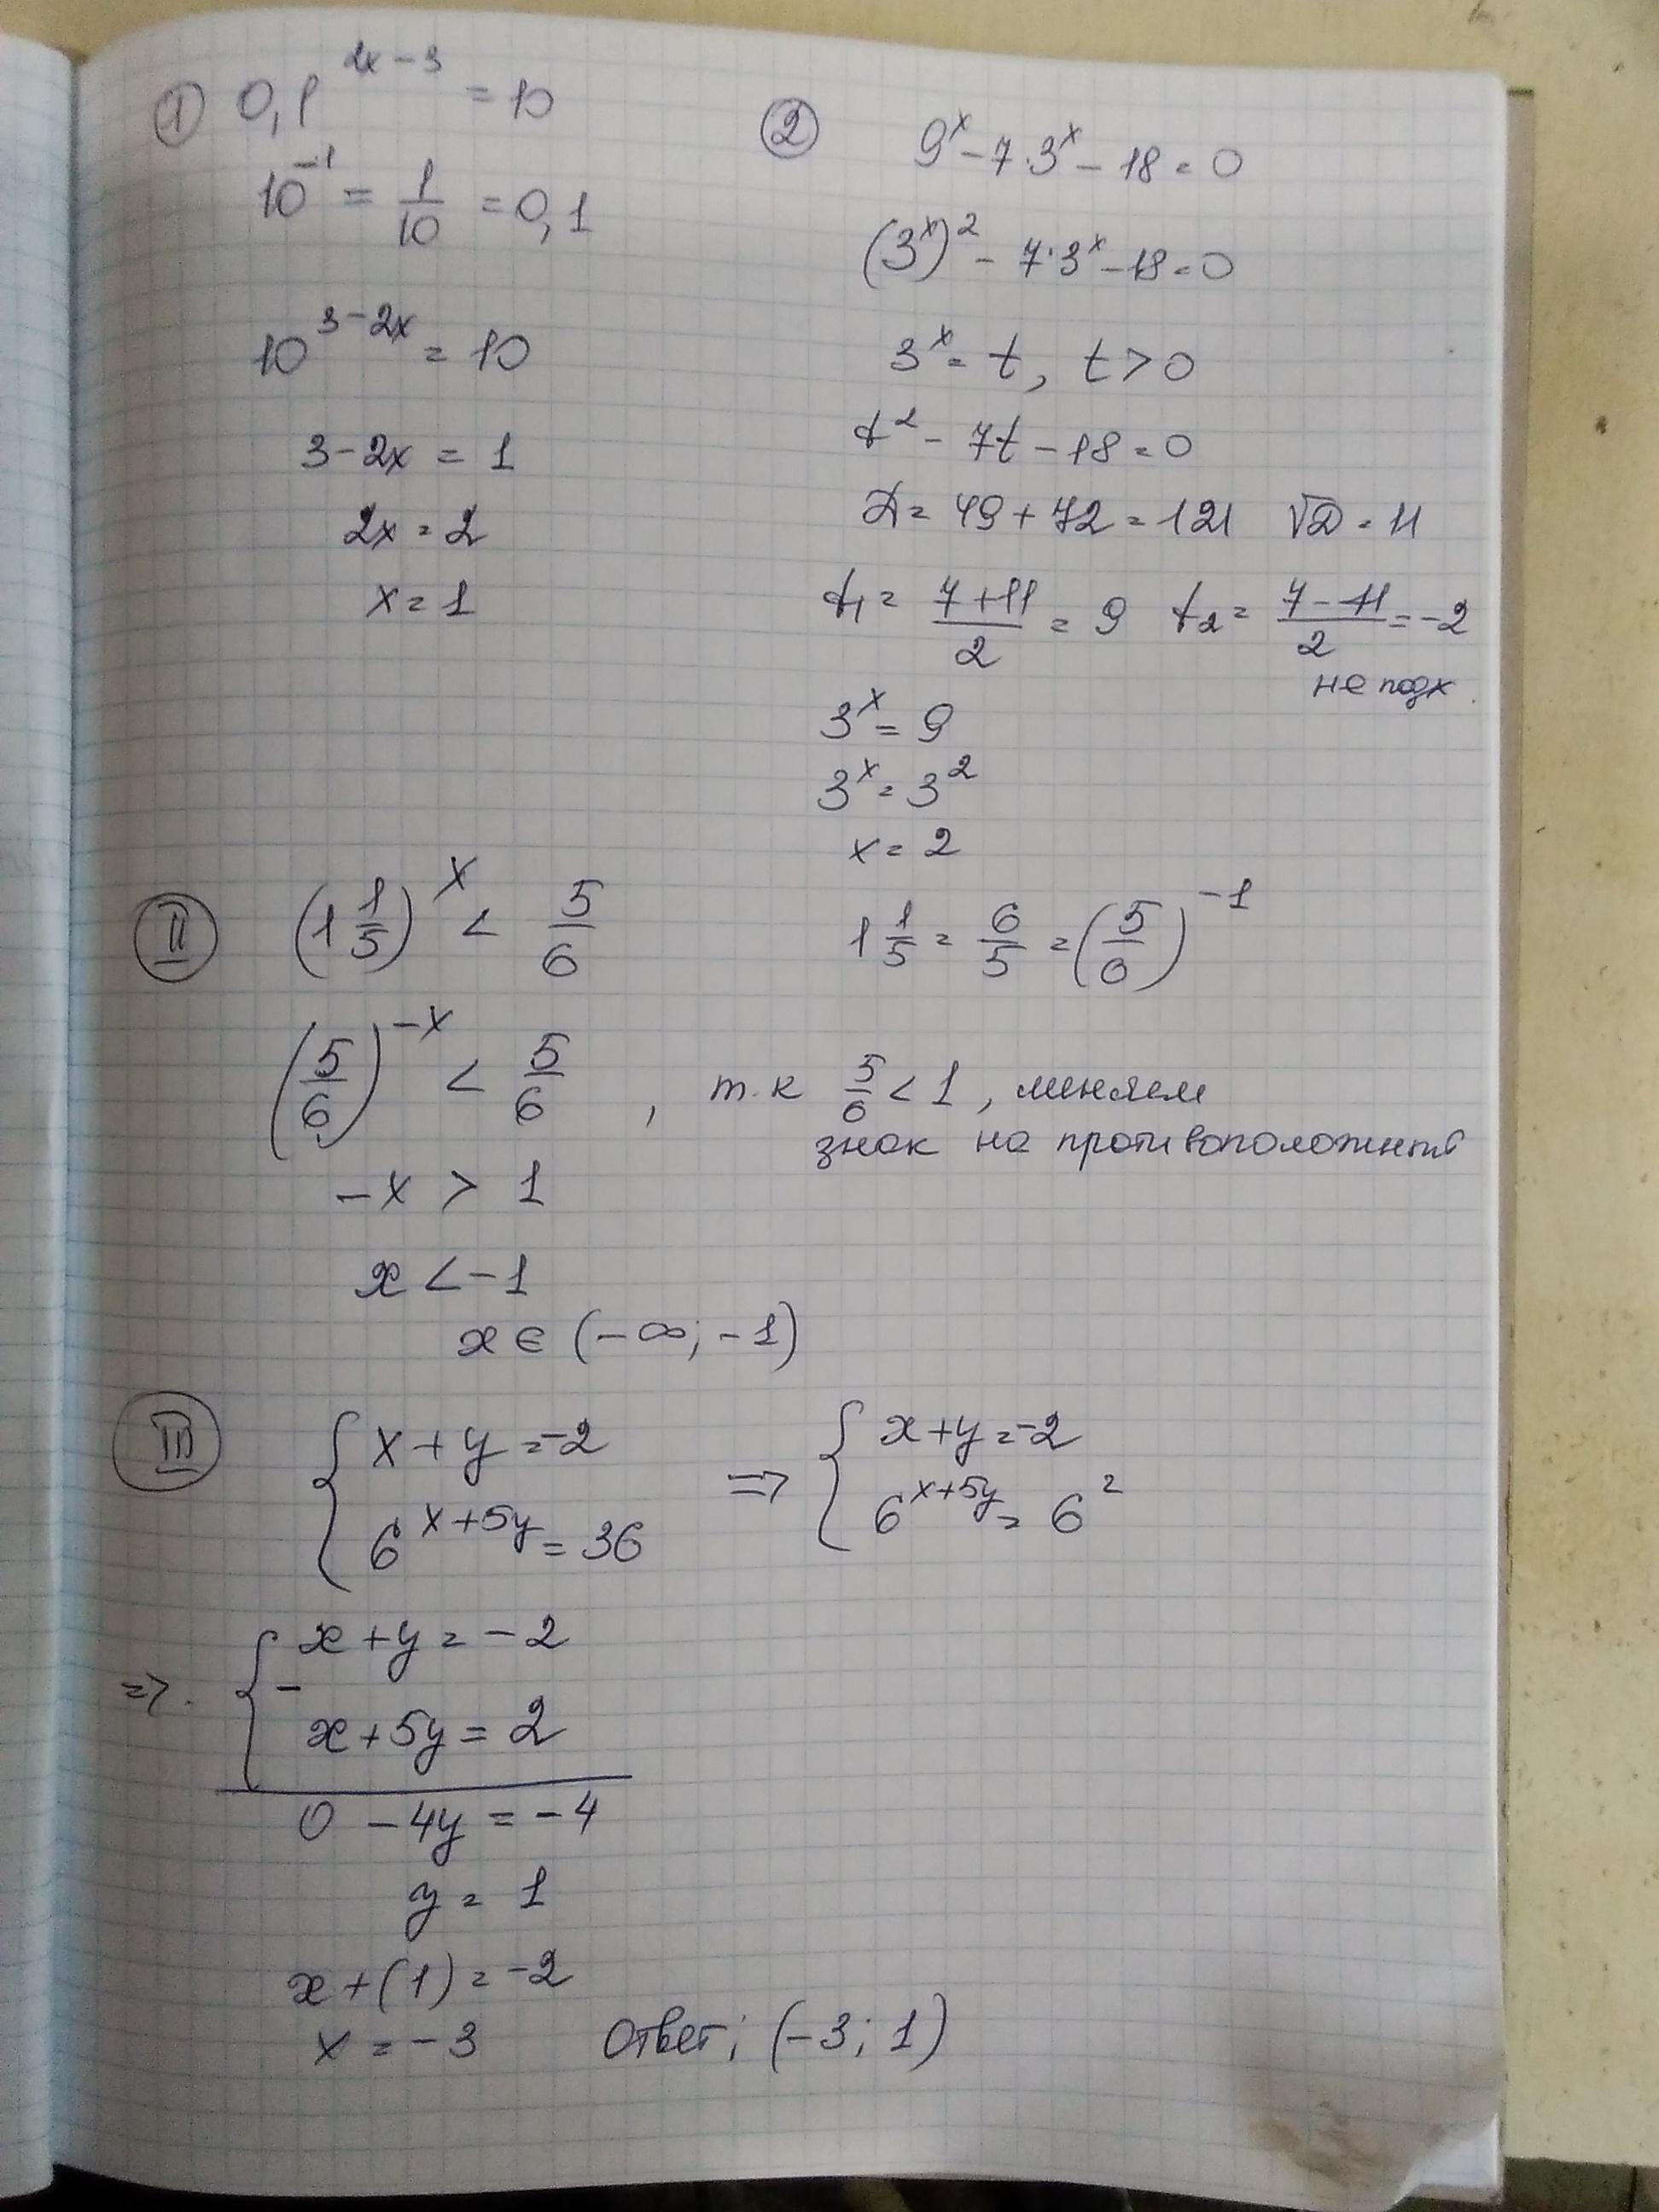 ① 0,1^{2x-3} = 10
10^{-1} = \frac{1}{10} = 0,1
10^{3-2x} = 10
3-2x = 1
2x = 2
x = 1
② 9^x - 7·3^x - 18 = 0
(3^x)^2 - 7·3^x - 18 = 0
3^x = t, t > 0
t^2 - 7t - 18 = 0
D = 49 + 72 = 121 √D = 11
t_1 = \frac{7+11}{2} = 9 t_2 = \frac{7-11}{2} = -2
не подх.
3^x = 9
3^x = 3^2
x = 2
Ⅱ (1\frac{1}{5})^x < \frac{5}{6} 1\frac{1}{5} = \frac{6}{5} = (\frac{5}{6})^{-1}
(\frac{5}{6})^{-x} < \frac{5}{6}, т.к \frac{5}{6} < 1, меняем
знак на противоположный
-x > 1
x < -1
x ∈ (-∞; -1)
Ⅲ { x + y = -2 => { x + y = -2
6^{x+5y} = 36 6^{x+5y} = 6^2
=>. { x + y = -2
-
x + 5y = 2
0 - 4y = -4
y = 1
x + (1) = -2
x = -3 Ответ; (-3; 1)